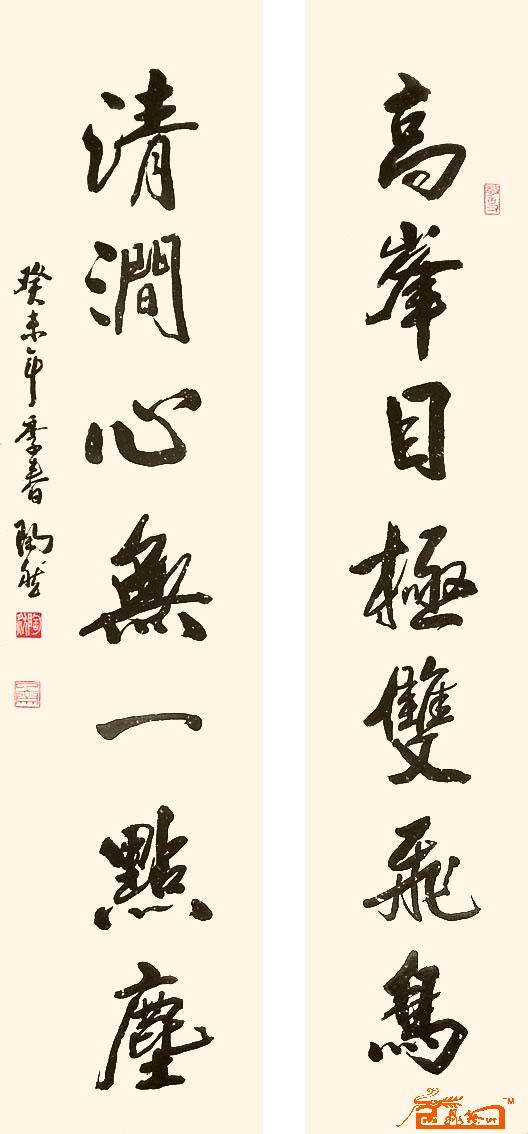 高峯目極雙飛鳥
清澗心無一點塵
癸未年季春陶然